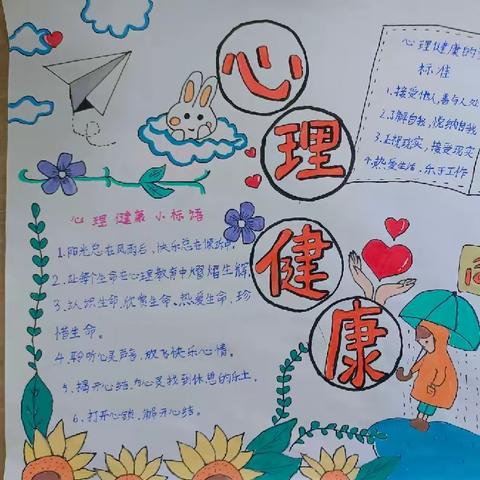 心理健康
心理健康的
标准
1.接受他人,善与人处
2.了解自我,悦纳自我
3.正视现实,接受现实
4.热爱生活,乐于工作
心理健康小标语
1.阳光总在风雨后,快乐总在倾诉中。
2.让每个生命在心理教育中熠熠生辉。
3.认识生命、欣赏生命、热爱生命、珍
惜生命。
4.聆听心灵声音,放飞快乐心情。
5.揭开心结,为心灵找到休息的乐土。
6.打开心锁,解开心结。